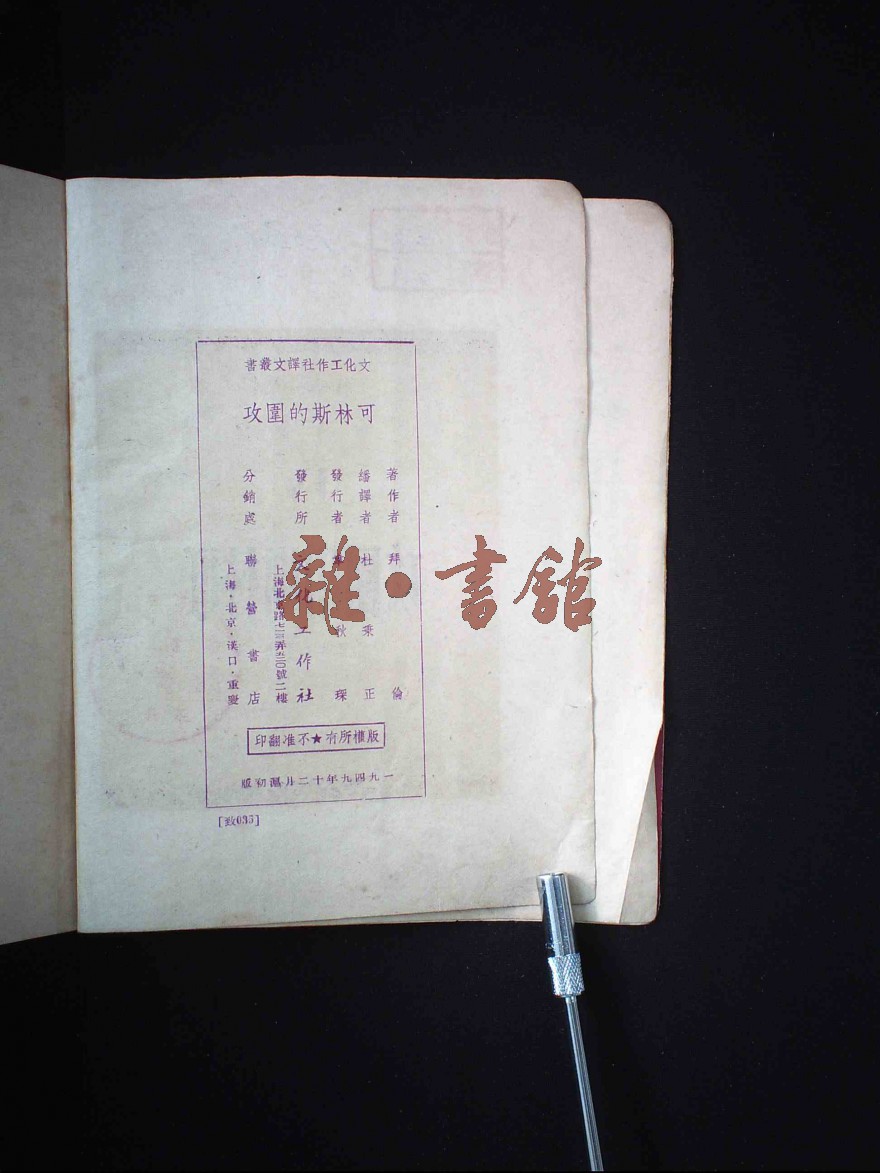 文化工作社譯文叢書
可林斯的圍攻
著作者 拜倫
繙譯者 杜秉正
發行者 秋琛
發行所 文化工作社
上海北 路 弄 號二樓
分銷處 聯營書店
上海・北京・漢口・重慶
版權所有★不准翻印
一九四九年十二月滬初版
[致035]
雜・書館